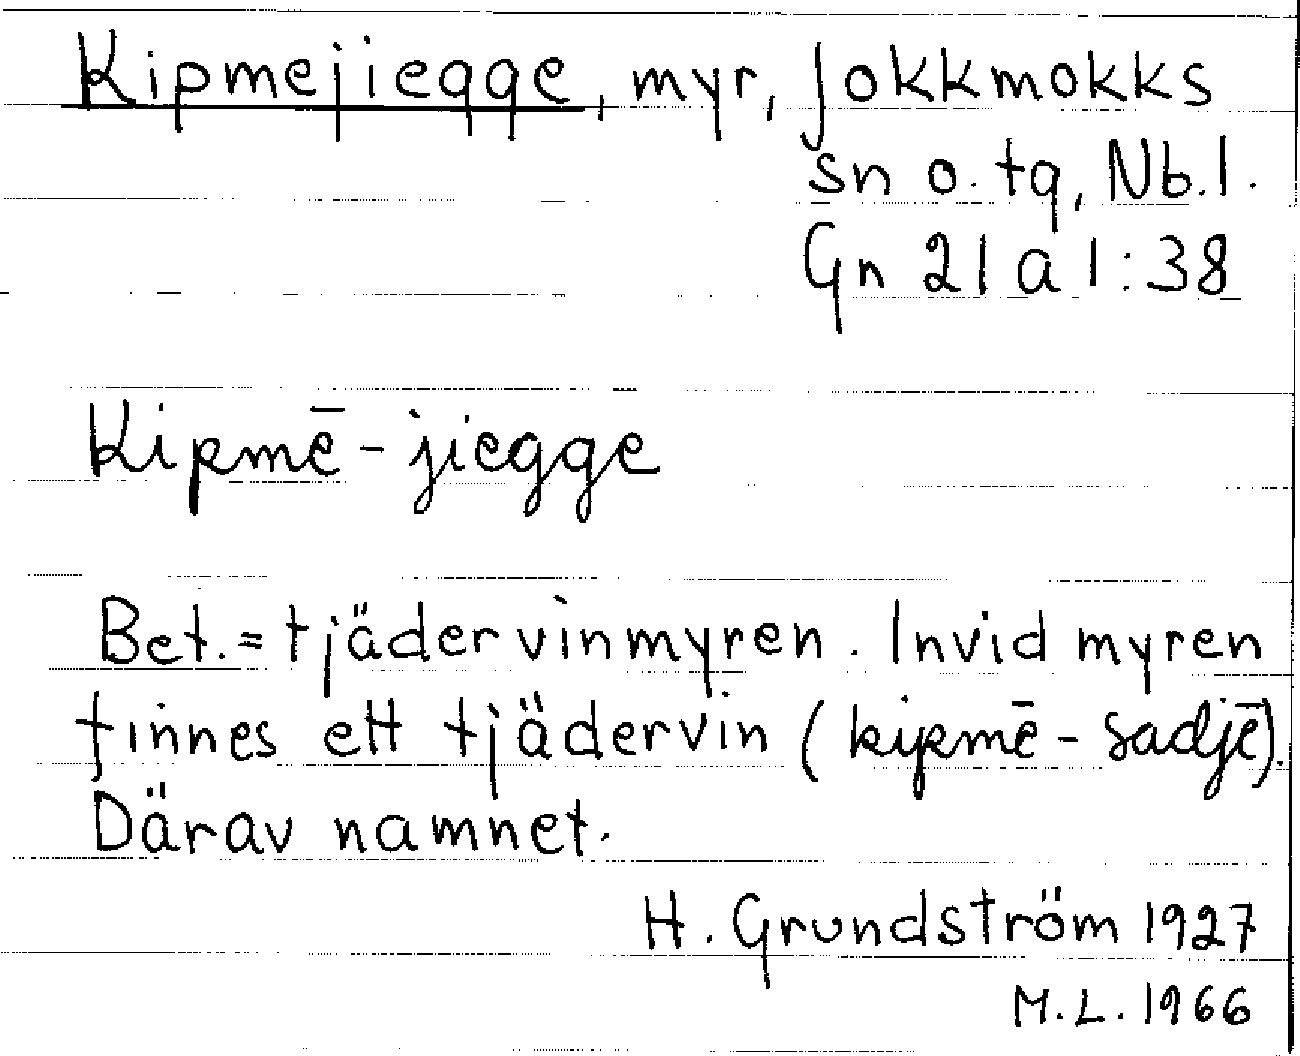 Kipmejiegge, myr, Jokkmokks
sn o. tg, Nb.l.
Gn 21 a 1:38
Kipmē-jiegge
Bet.= tjädervinmyren. Invid myren
finnes ett tjädervin (kipmē-sadjē).
Därav namnet.
H. Grundström 1927
M.L. 1966